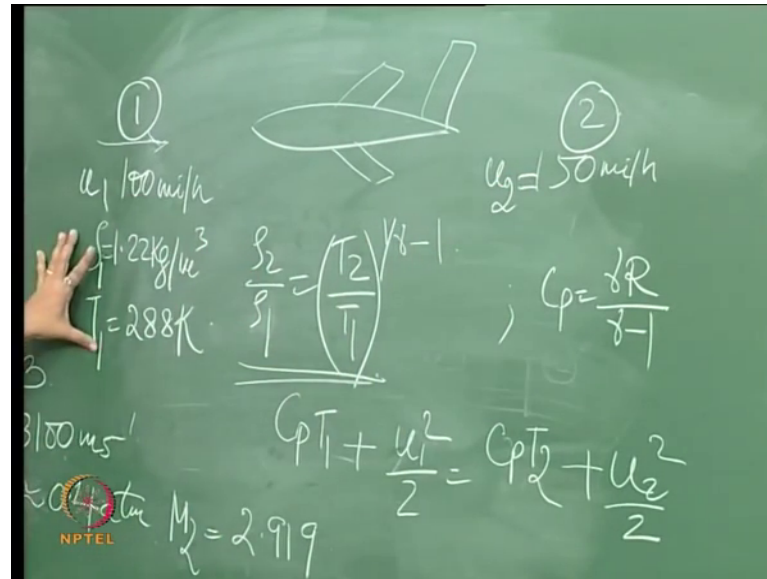 ①
②
u₁ 100mi/h
u₂ = 150mi/h
ρ₁ = 1.22 Kg/m³
T₁ = 288K.
ρ₂/ρ₁ = (T₂/T₁)^1/γ-1.
; Cp = γR/γ-1
CpT₁ + u₁²/2 = CpT₂ + u₂²/2
3.
3100 ms⁻¹
M₂ = 2.919
NPTEL